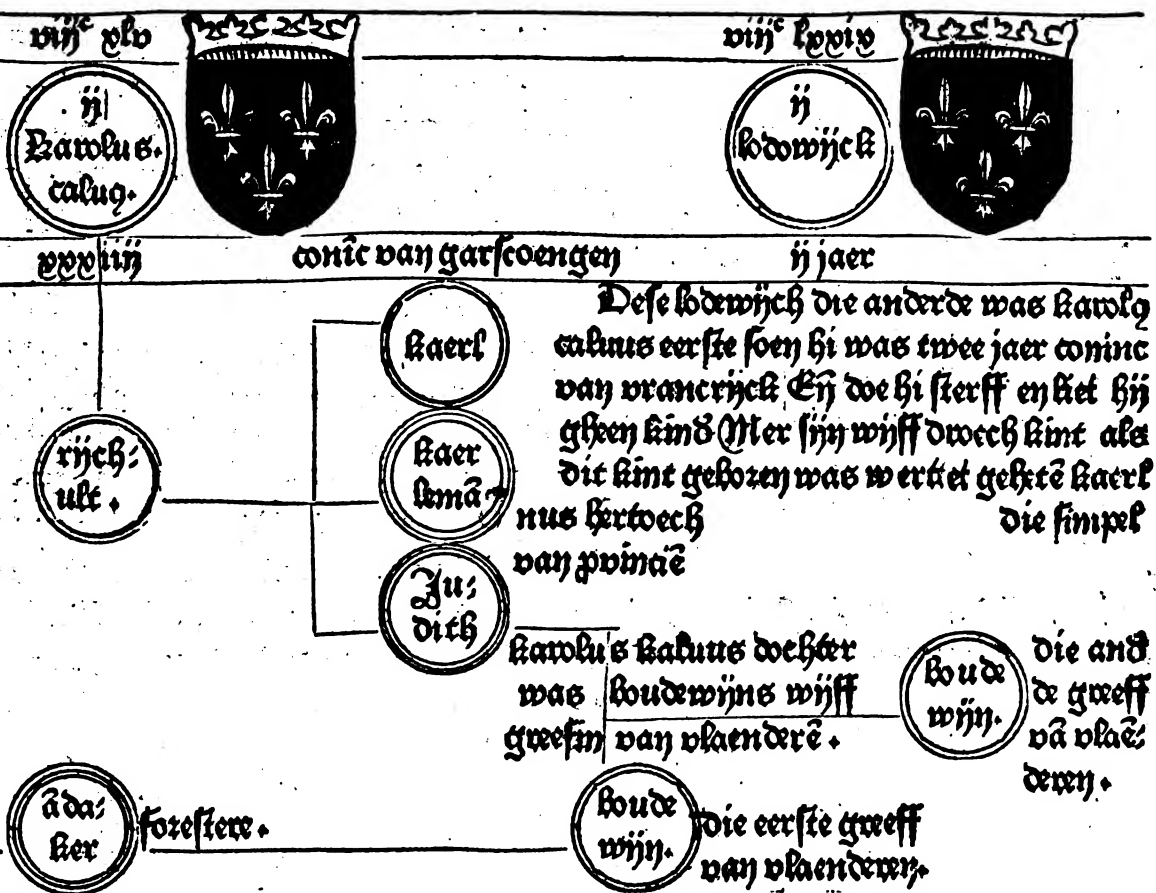 viijᶜ xlv
viijᶜ lxxix
ij
Karolus.
caluꝯ.
ij
lodowijck
xxxiiij
conīc van garscoengen
ij jaer
Dese lodewijch die anderde was karolꝯ
caluus eerste soen hi was twee jaer coninc
van vrancrijck Eñ doe hi sterff en liet hij
gheen kind Mer sijn wijff droech kint als
dit kint geboren was wertet gehetē kaerl
die simpel
kaerl
rijch⸗
ult.
kaer
lemā⸗
nus hertoech
van ꝓvinciē
Ju⸗
dith
karolus kaluus dochter
was boudewijns wijff
greefin van vlaenderē.
boude
wijn.
die and̄
de greeff
vā vlaē⸗
deren.
āda⸗
ker
forestere.
boude
wijn.
die eerste greeff
van vlaenderen.